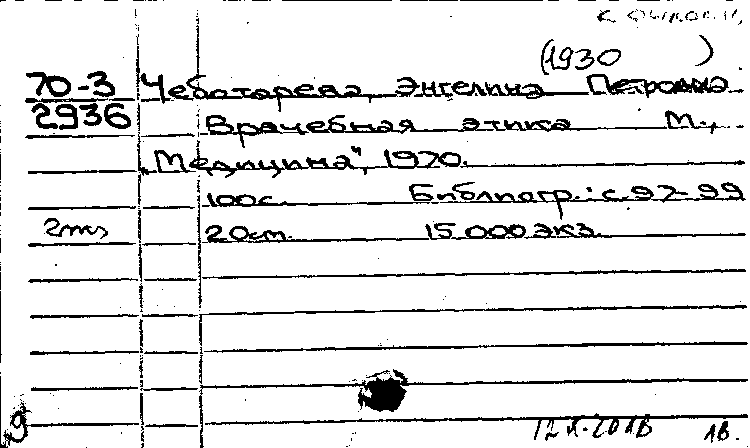 (1930 )
70-3 Чеботарева, Энгелина Петровна
2936 Врачебная этика М.,
„Медицина", 1970.
100с. Библиогр.: с. 97-99
2экз 20см. 15.000 экз.
9
1В.